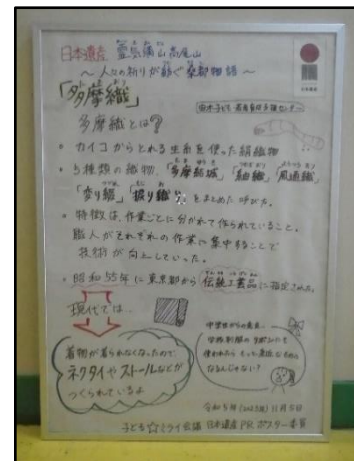 日本遺産 霊気満山 高尾山
～ 人々の祈りが紡ぐ桑都物語 ～
「多摩織」
多摩織とは?
• カイコからとれる生糸を使った絹織物
• 5種類の織物、「多摩結城」「紬織」「風通織」
「変り綴」「捩り織」をまとめた呼び方。
• 特徴は、作業ごとに分かれて作られていること。
職人がそれぞれの作業に集中することで
技術が向上していった。
• 昭和55年に東京都から伝統工芸品に指定された。
現代では…
着物が着られなくなったので
ネクタイやストールなどが
つくられているよ
中学生からの意見…
学校制服の
使われたらもっと身近なものに
なるんじゃない?
令和5年(2023年)11月5日
子ども☆ミライ会議 日本遺産PRポスター委員